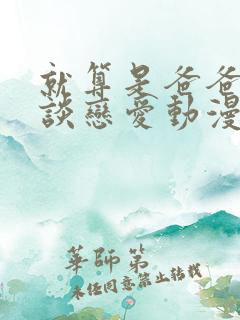 就算是爸爸
談戀愛動漫
華師第
未經同意禁止轉載